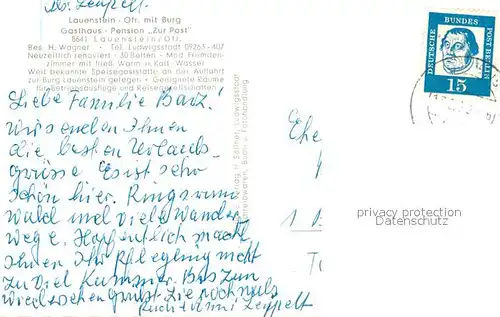 Lauenstein - Ofr. mit Burg
Gasthaus - Pension „Zur Post"
8641 Lauenstein/Ofr.
Bes. H. Wagner · Tel. Ludwigsstadt 09263 - 407
Neuzeitlich renoviert · 30 Betten · Mod. Fremden-
zimmer mit fließ. Warm u. Kalt. Wasser
Weit bekannte Speisegaststätte an der Auffahrt
zur Burg Lauenstein gelegen · Geeignete Räume
für Betriebsausflüge und Reisegesellschaften
Liebe Familie Barz!
Wir senden Ihnen
die besten Urlaubs-
grüsse. Es ist sehr
schön hier. Ringsrum
Wald und viele Wander
wege. Hoffentlich macht
Ihnen Ihr Pflegling nicht
zu viel Kummer. Bis zum
Wiedersehen grüsst Sie nochmals
Zeppelt
Ehe
1
DEUTSCHE BUNDES POST BERLIN
15
privacy protection
Datenschutz